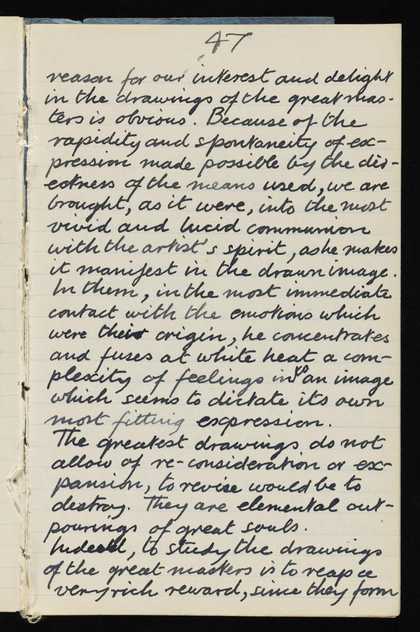 47
reason for our interest and delight
in the drawings of the great mas-
ters is obvious. Because of the
rapidity and spontaneity of ex-
pression made possible by the dir-
ectness of the means used, we are
brought, as it were, into the most
vivid and lucid communion
with the artist's spirit, as he makes
it manifest in the drawn image.
In them, in the most immediate
contact with the emotions which
were their origin, he concentrates
and fuses at white heat a com-
plexity of feelings into an image
which seems to dictate its own
most fitting expression.
The greatest drawings do not
allow of re-consideration or ex-
pansion, to revise would be to
destroy. They are elemental out-
pourings of great souls.
Indeed, to study the drawings
of the great masters is to reap a
very rich reward, since they form